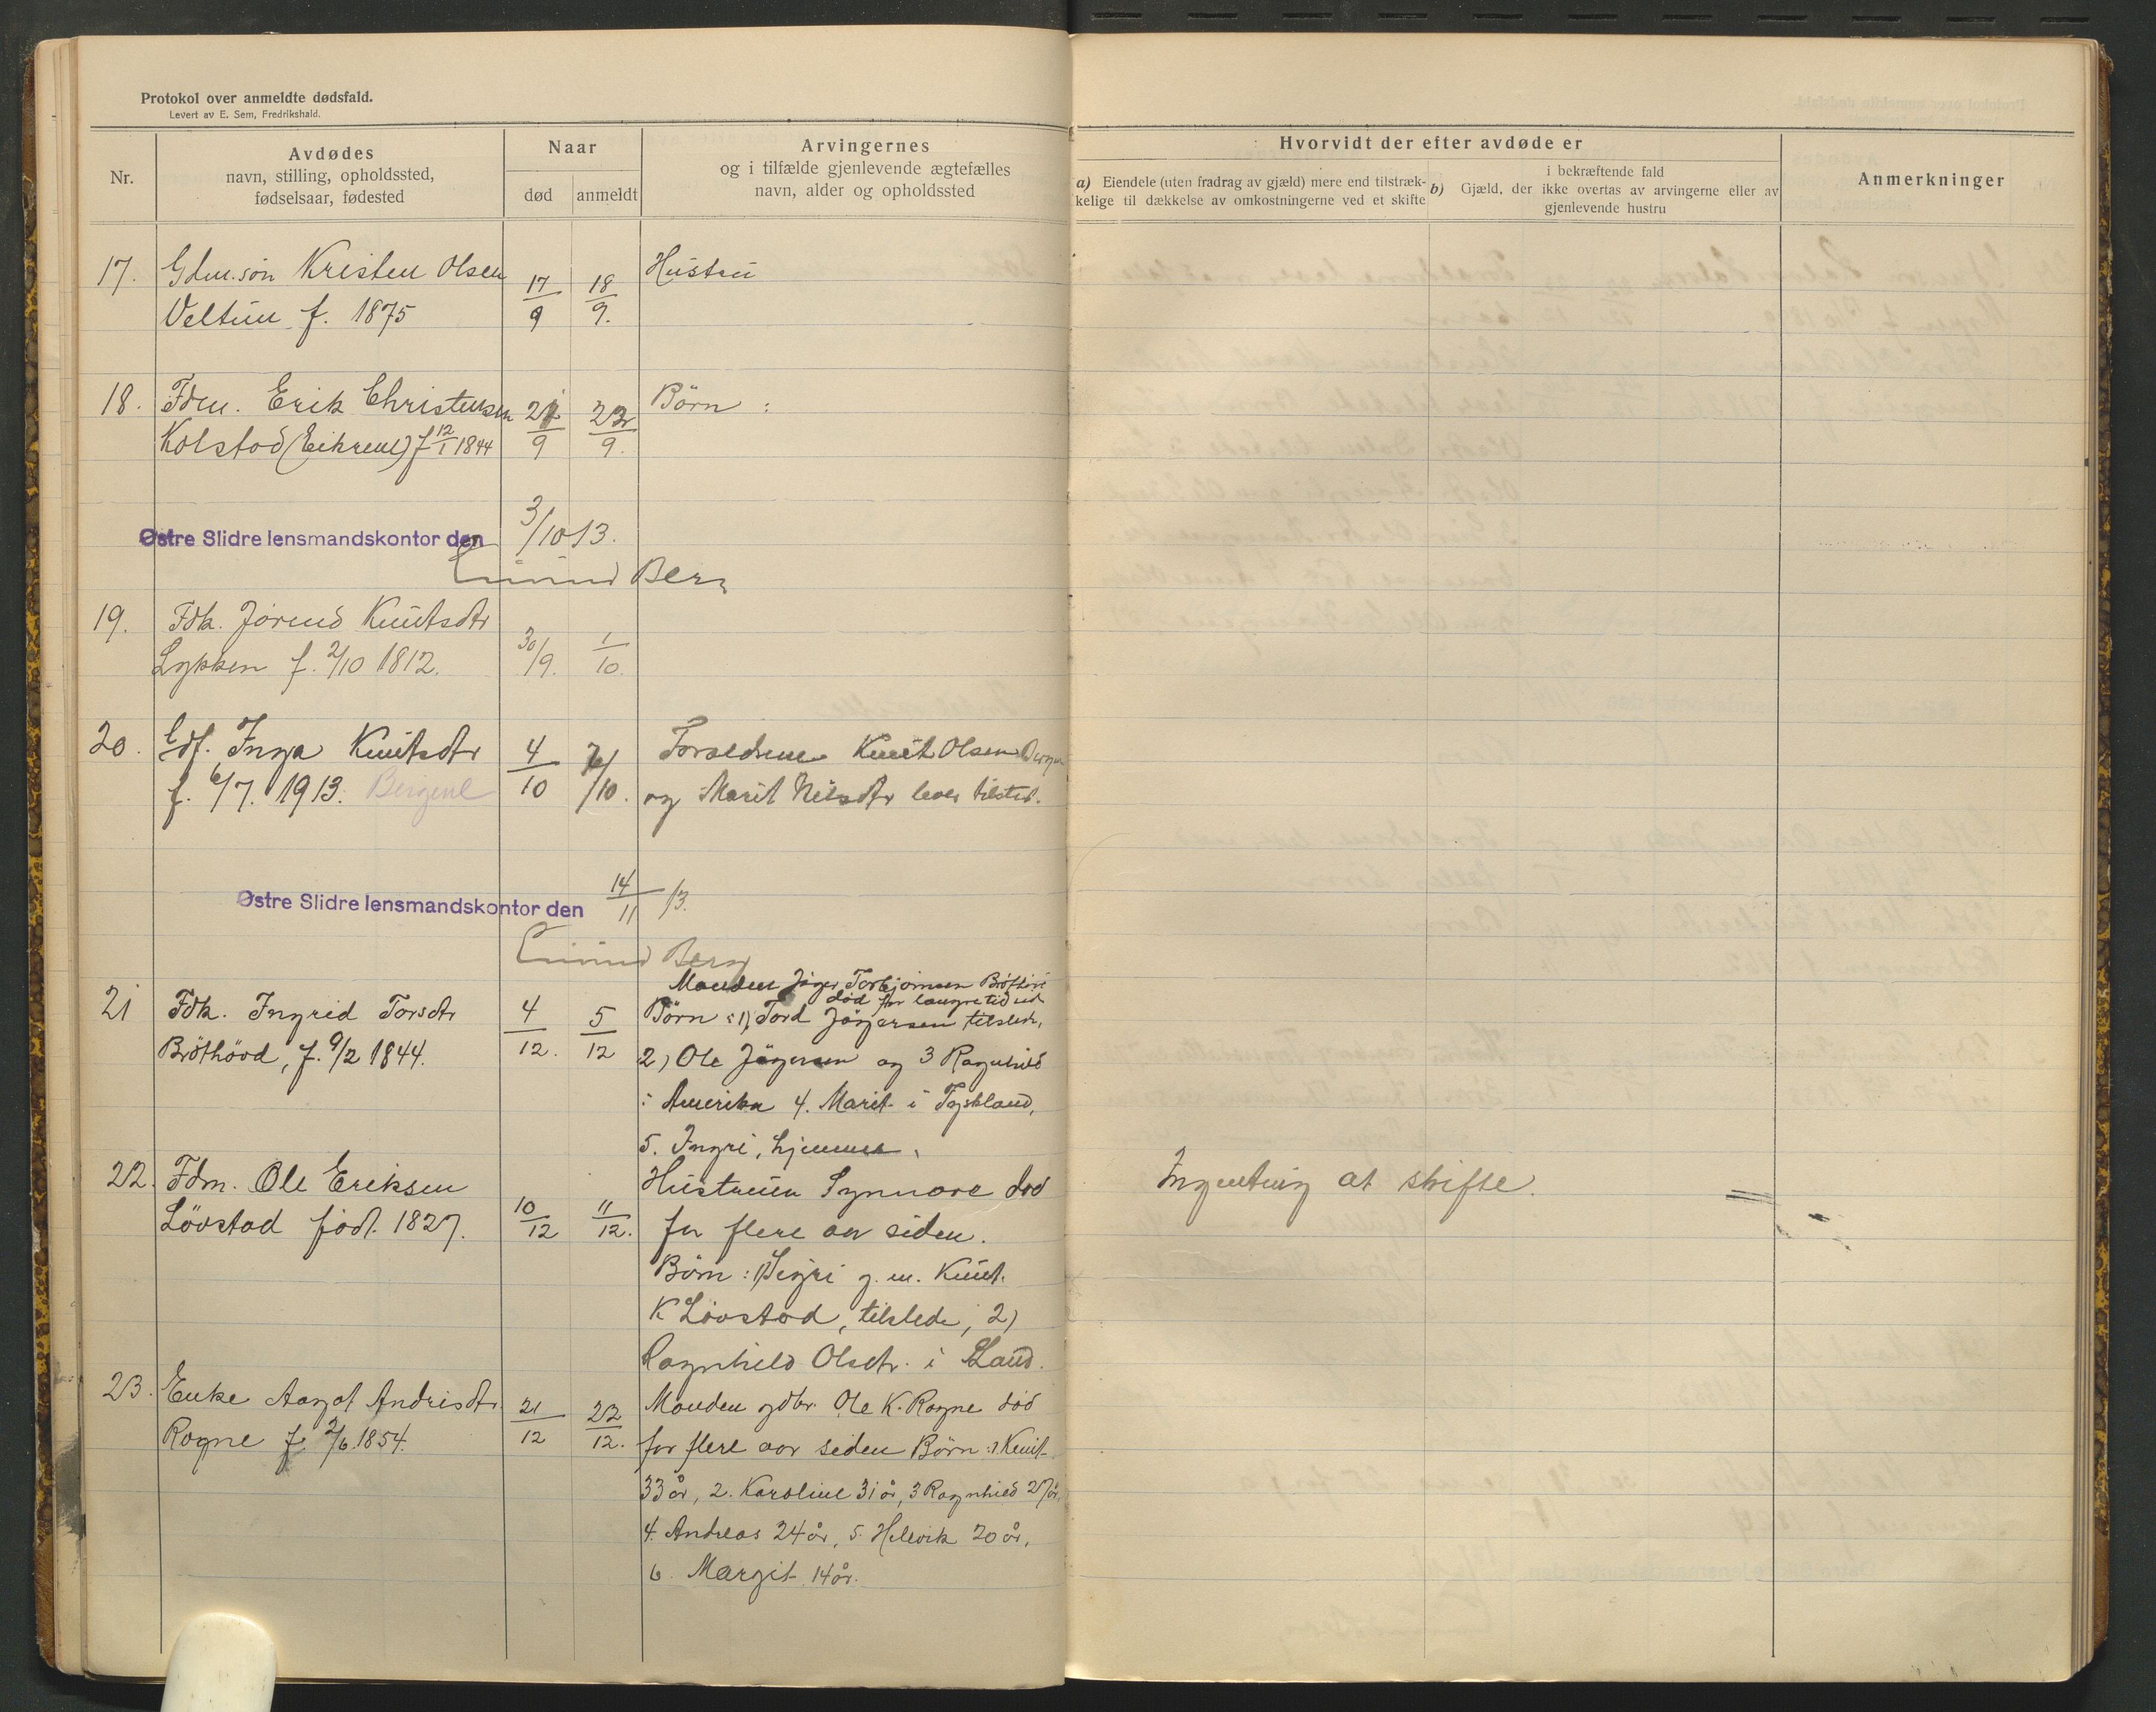 Protokol over anmeldte dødsfald.
Levert av E. Sem, Fredrikshald.
Nr.
Avdødes
navn, stilling, opholdssted,
fødselsaar, fødested
Naar
død
anmeldt
Arvingernes
og i tilfælde gjenlevende ægtefælles
navn, alder og opholdssted
Hvorvidt der efter avdøde er
a) Eiendele (uten fradrag av gjæld) mere end tilstræk-
kelige til dækkelse av omkostningerne ved et skifte
i bekræftende fald
b) Gjæld, der ikke overtas av arvingerne eller av
gjenlevende hustru
Anmerkninger
17. Gdm.søn Kristen Olsen 17/9 18/9. Hustru
Veltun f. 1875
18. Fdm. Erik Christensen 21/9 22/9. Børn :
Kolstad (Eikrene) f 12/1 1844
Østre Slidre lensmandskontor den 3/10 13.
Eivind Berg
19. Fdk. Jørund Knutsdtr 30/9. 1/10.
Lykken f. 2/10 1812.
20. Inga Knutsdtr 4/10 /10. Forældrene Knut Olsen Bergene
f. 6/7. 1913. Bergene og Marit Nilsdtr lever tilsted.
Østre Slidre lensmandskontor den 14/11 13.
Eivind Berg
Manden Jøger Torbjørnsen Brøthøvd
død for længre tid sid
21 Fdk. Ingrid Torsdtr 4/12. 5/12 Børn : 1) Tord Jøgersen tilstede,
Brøthøvd, f. 9/2 1844. 2) Ole Jøgersen og 3 Ragnhild
i Amerika 4. Marit i Tyskland,
5. Ingri, hjemme.
22. Fdm. Ole Eriksen 10/12 11/12. Hustruen Synnøve død Ingenting at skifte.
Løvstad født. 1827. for flere aar siden.
Børn : 1) Sigri g. m. Knut
K Løvstad, tilstede, 2)
Ragnhild Olsdtr. i Land.
23. Enke Aagot Andrisdtr. 21/12 22/12. Manden gdbr. Ole K. Rogne død
Rogne f. 2/6 1854. for flere aar siden Børn : 1 Knut
33 år, 2. Karoline 31 år, 3 Ragnhild 27 år,
4. Andreas 24 år, 5. Hilevik 20 år,
6. Margit 14 år.